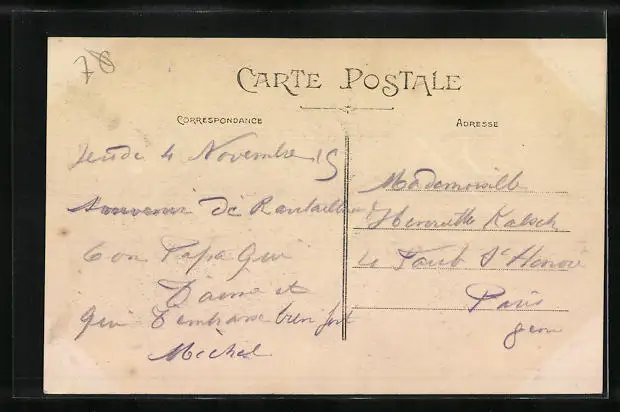 78
CARTE POSTALE
CORRESPONDANCE
ADRESSE
Jeudi 4 Novembre 15
Souvenir de
Ton Papa Qui
T'aime et
Qui T'embrasse bien fort
Michel
Mademoiselle
Henriette Kalsch
Faub St Honoré
Paris